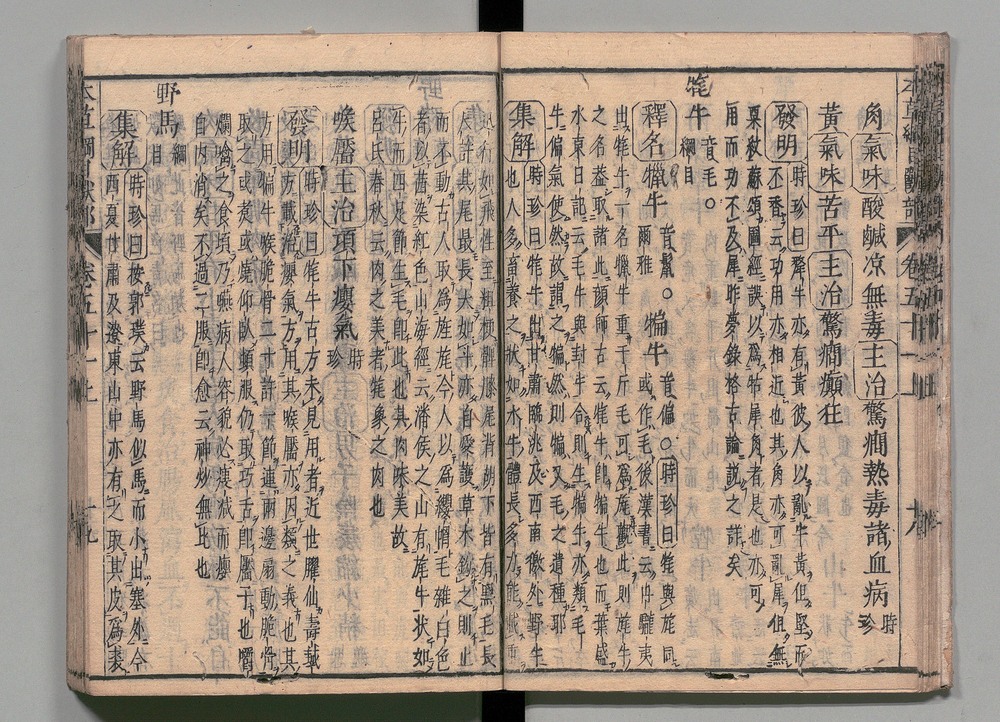 角氣味酸鹹凉無毒主治驚癎熱毒諸血病時珍
黃氣味苦平主治驚癎癲狂
發明時珍曰犛牛亦有黃彼人以亂牛黃但堅而
不香云功用亦相近也其角亦可亂犀但無
粟紋蘇頌圖經誤以爲牯犀角者是也亦可
用而功不及犀昨夢錄格古論說之詳矣
牦牛音毛○綱目
釋名犣牛音鬣○爾雅犏牛音偏○時珍曰牦與旄同
或作毛後漢書云冉駹夷
出牦牛一名犣牛重千斤毛可爲旄觀此則旄牛
之名蓋取諸此顏師古云牦牛卽犏牛也而葉盛
水東日記云毛牛與封牛合則生犏牛亦類毛
牛偏氣使然故謂之犏然則犏又毛之遺種耶
集解時珍曰牦牛出甘肅臨洮及西南徼外野牛
也人多畜養之狀如水牛體長多力能載重
迅行如飛性至粗梗髀膝尾背胡下皆有黑毛長
尺許其尾最長大如斗亦自愛護草木鉤之則止
而不動古人取爲旌旄今人以爲纓帽毛雜白色
者以茜染紅色山海經云潘侯之山有旄牛狀如
牛而四足節生毛卽此也其肉味美故
呂氏春秋云肉之美者牦象之肉也
喉靨主治項下癭氣時珍
發明時珍曰牦牛古方未見用者近世臞仙壽域
方載治癭氣方用其喉靨亦因類之義也其
方用犏牛喉脆骨二寸許一節連兩邊扇動脆骨
取之或煮或燒仰臥頓服仍取巧舌卽靨子也嚼
爛噙之食頃乃嚥病人容貌必瘦減而癭
自內消矣不過二服卽愈云神妙無比也
野馬綱目
集解時珍曰按郭璞云野馬似馬而小出塞外今
西夏甘肅及遼東山中亦有之取其皮爲裘